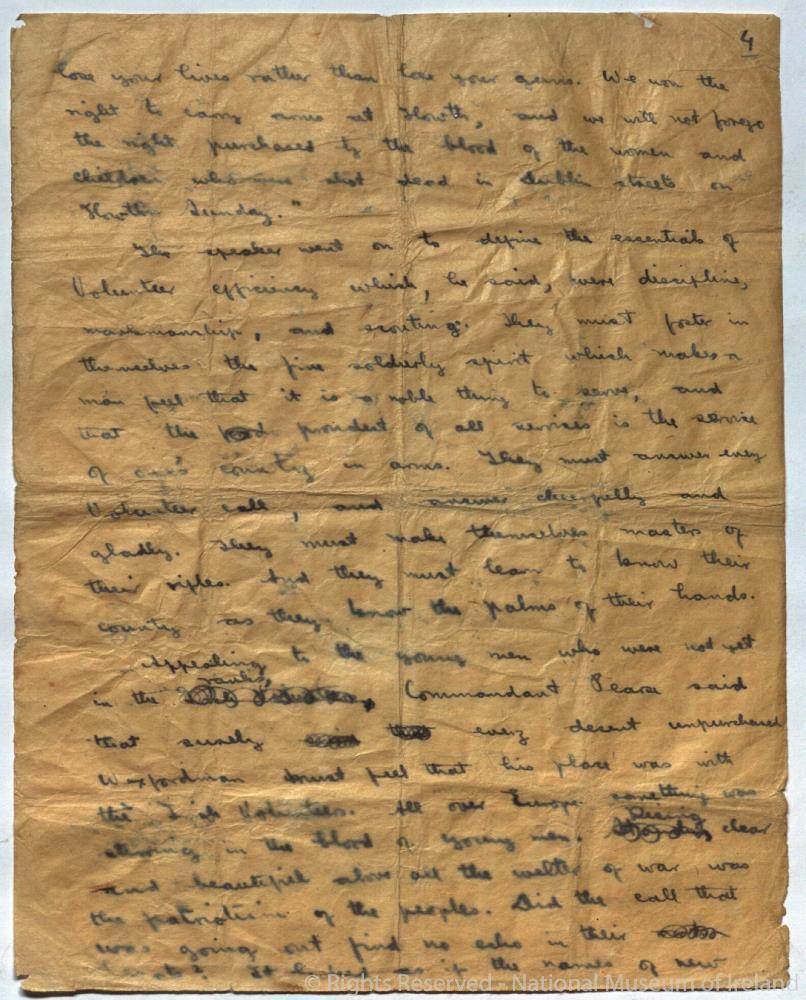 4
lose your lives rather than lose your guns. We won the
right to carry arms at Howth, and we will not forego
the right purchased by the blood of the women and
children who were shot dead in Dublin streets on
Howth Sunday."
The speaker went on to define the essentials of
Volunteer efficiency which, he said, were discipline,
marksmanship, and scouting. They must foster in
themselves the fine soldierly spirit which makes a
man feel that it is a noble thing to serve, and
that the proudest of all services is the service
of one's country in arms. They must answer every
Volunteer call, and answer cheerfully and
gladly. They must make themselves masters of
their rifles. And they must learn to know their
country as they know the palms of their hands.
Appealing to the young men who were not yet
in the ranks, Commandant Pearse said
that surely every decent unpurchased
Wexfordman must feel that his place was with
the Irish Volunteers. All over Europe something was
stirring in the blood of young men. Rising clear
and beautiful above all the welter of war, was
the patriotism of the peoples. Did the call that
was going out find no echo in their
hearts? It as if the names of New
© Rights Reserved - National Museum of Ireland